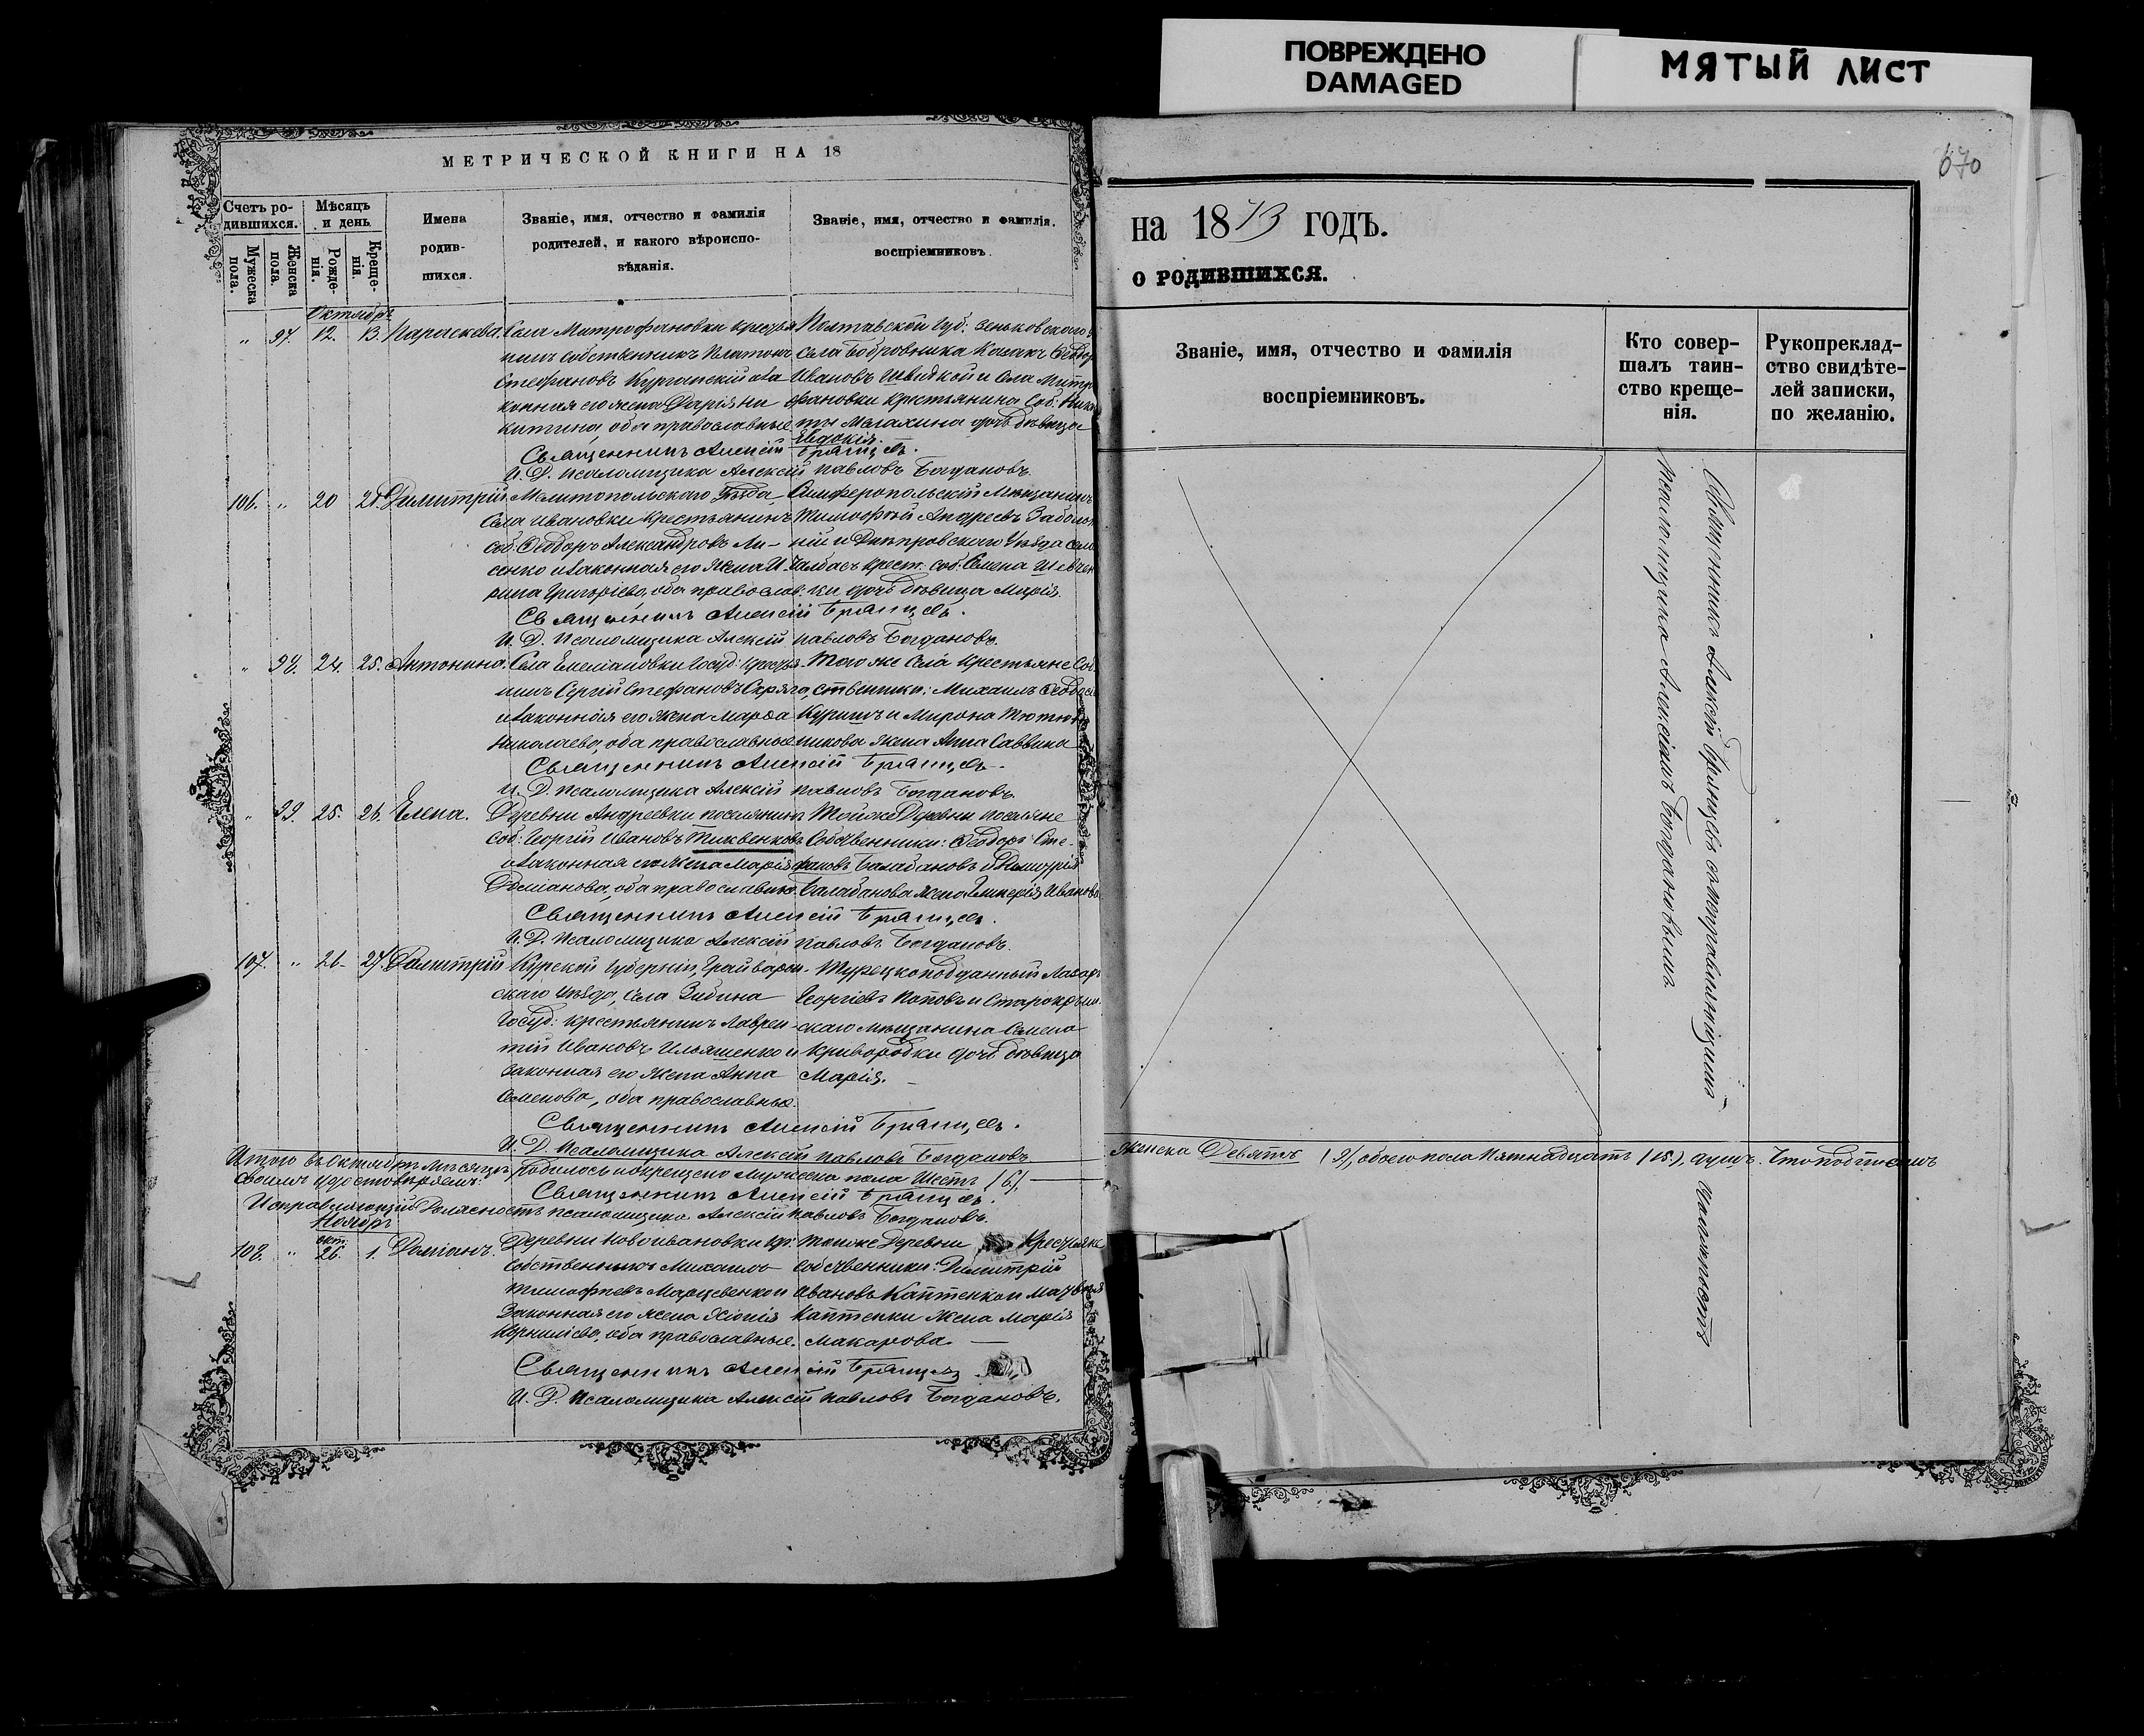 ПОВРЕЖДЕНО
DAMAGED
МЯТЫЙ ЛИСТ
670
МЕТРИЧЕСКОЙ КНИГИ НА 18
Счетъ ро-
дившихся.
Мужеска пола.
Женска пола.
Мѣсяцъ
и день
Рожде-
нія.
Креще-
нія.
Имена
родив-
шихся.
Званіе, имя, отчество и фамилія
родителей, и какого вѣроиспо-
вѣданія.
Званіе, имя, отчество и фамилія.
воспріемниковъ.
Октябрь
„ 97. 12. 13. Параскева.
Села Митрофановки крестья
нинъ собственникъ Платонъ
Стефановъ Курганскій и за
конная его жена Дарія Ни
китина, оба православные
Полтавской Губ: Зеньковскаго
села Бобровника Козакъ Ѳедор
Ивановъ Швидкій и Села Митр
фановки крестьянина Соб: Ники
ты Малахина дочь дѣвица
Евдокія.
Священникъ Алексій Бранцевъ.
И. Д. Псаломщика Алексій Павловъ Богдановъ.
106. „ 20 21. Димитрій.
Мелитопольскаго Уѣзда
Села Ивановки Крестьянинъ
соб. Ѳеодоръ Александровъ Ли-
сенко и законная его жена И
рина Григоріева, оба православ.
Симферопольскій Мѣщанинъ
Тимофей Андреевъ Заболот
ній и Днѣпровскаго Уѣзда села
Чалбасъ крест. соб. Семена Шевчен
ки дочь дѣвица Марія.
Священникъ Алексій Бранцевъ.
И. Д. Псаломщика Алексій Павловъ Богдановъ.
„ 98. 24. 25. Антонина.
Села Емеліановки Госуд: крестья
нинъ Сергій Стефановъ Скряга,
и законная его жена Марѳа
Николаева, оба православные
Того же Села Крестьяне Соб
ственники: Михаилъ Ѳеодосі
Куришъ и Мирона Тютюн
никова жена Анна Саввина
Священникъ Алексій Бранцевъ.
И. Д. Псаломщика Алексій Павловъ Богдановъ.
„ 99. 25. 26. Елена.
Деревни Андреевки поселянинъ
соб: Георгій Ивановъ Тиквенковъ
и законная его жена Марія
Даміанова, оба православные.
Той же Деревни поселяне
Собственники: Ѳеодоръ Сте-
фановъ Балабановъ и Димитрія
Балабанова жена Гликерія Иванова
Священникъ Алексій Бранцевъ.
И. Д. Псаломщика Алексій Павловъ Богдановъ.
107. „ 26. 27. Димитрій
Курской Губерніи, Грайворон-
скаго Уѣзда, Села Зибина
Госуд: крестьянинъ Лаврен-
тій Ивановъ Ильяшенко и
законная его жена Анна
Семенова, оба православные.
Турецкоподданный Лазарь
Георгіевъ Поповъ и Старокрым
скаго мѣщанина Семена
Криворотки дочь дѣвица
Марія.
Священникъ Алексій Бранцевъ.
И. Д. Псаломщика Алексій Павловъ Богдановъ
Итого въ Октябрѣ Мѣсяцѣ родилось и крещено Мужеска пола Шесть /6/,
своимъ удостовѣряемъ:
Священникъ Алексій Бранцевъ.
Исправляющій Должность псаломщика Алексій Павловъ Богдановъ.
Ноябрь
108. „ окт: 26. 1. Даміанъ.
Деревни Новоивановки кр:
собственникъ Михаилъ
Тимофеевъ Марцевенко и
Законная его жена Хіонія
Корниліева, оба православные.
Тойже Деревни Крестьяне
собственники: Димитрій
Ивановъ Каптенко и Матвѣя
Каптенки жена Марія
Макарова.
Священникъ Алексій Бранцевъ
И. Д. Псаломщика Алексій Павловъ Богдановъ.
на 1873 годъ.
о родившихся.
Званіе, имя, отчество и фамилія
воспріемниковъ.
Кто совер-
шалъ таин-
ство креще-
нія.
Рукопреклад-
ство свидѣте-
лей записки,
по желанію.
Священникъ Алексій Бранцевъ съ исправляющимъ должность
псаломщика Алексіемъ Богдановымъ.
Женска Девять /9/, обоего пола Пятнадцать /15./, душъ. Что подписомъ